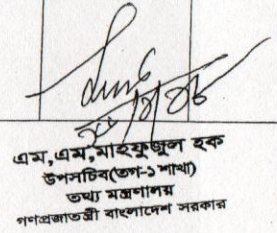 এম,এম,মাহফুজুল হক
উপসচিব(তপ-১ শাখা)
তথ্য মন্ত্রণালয়
গণপ্রজাতন্ত্রী বাংলাদেশ সরকার